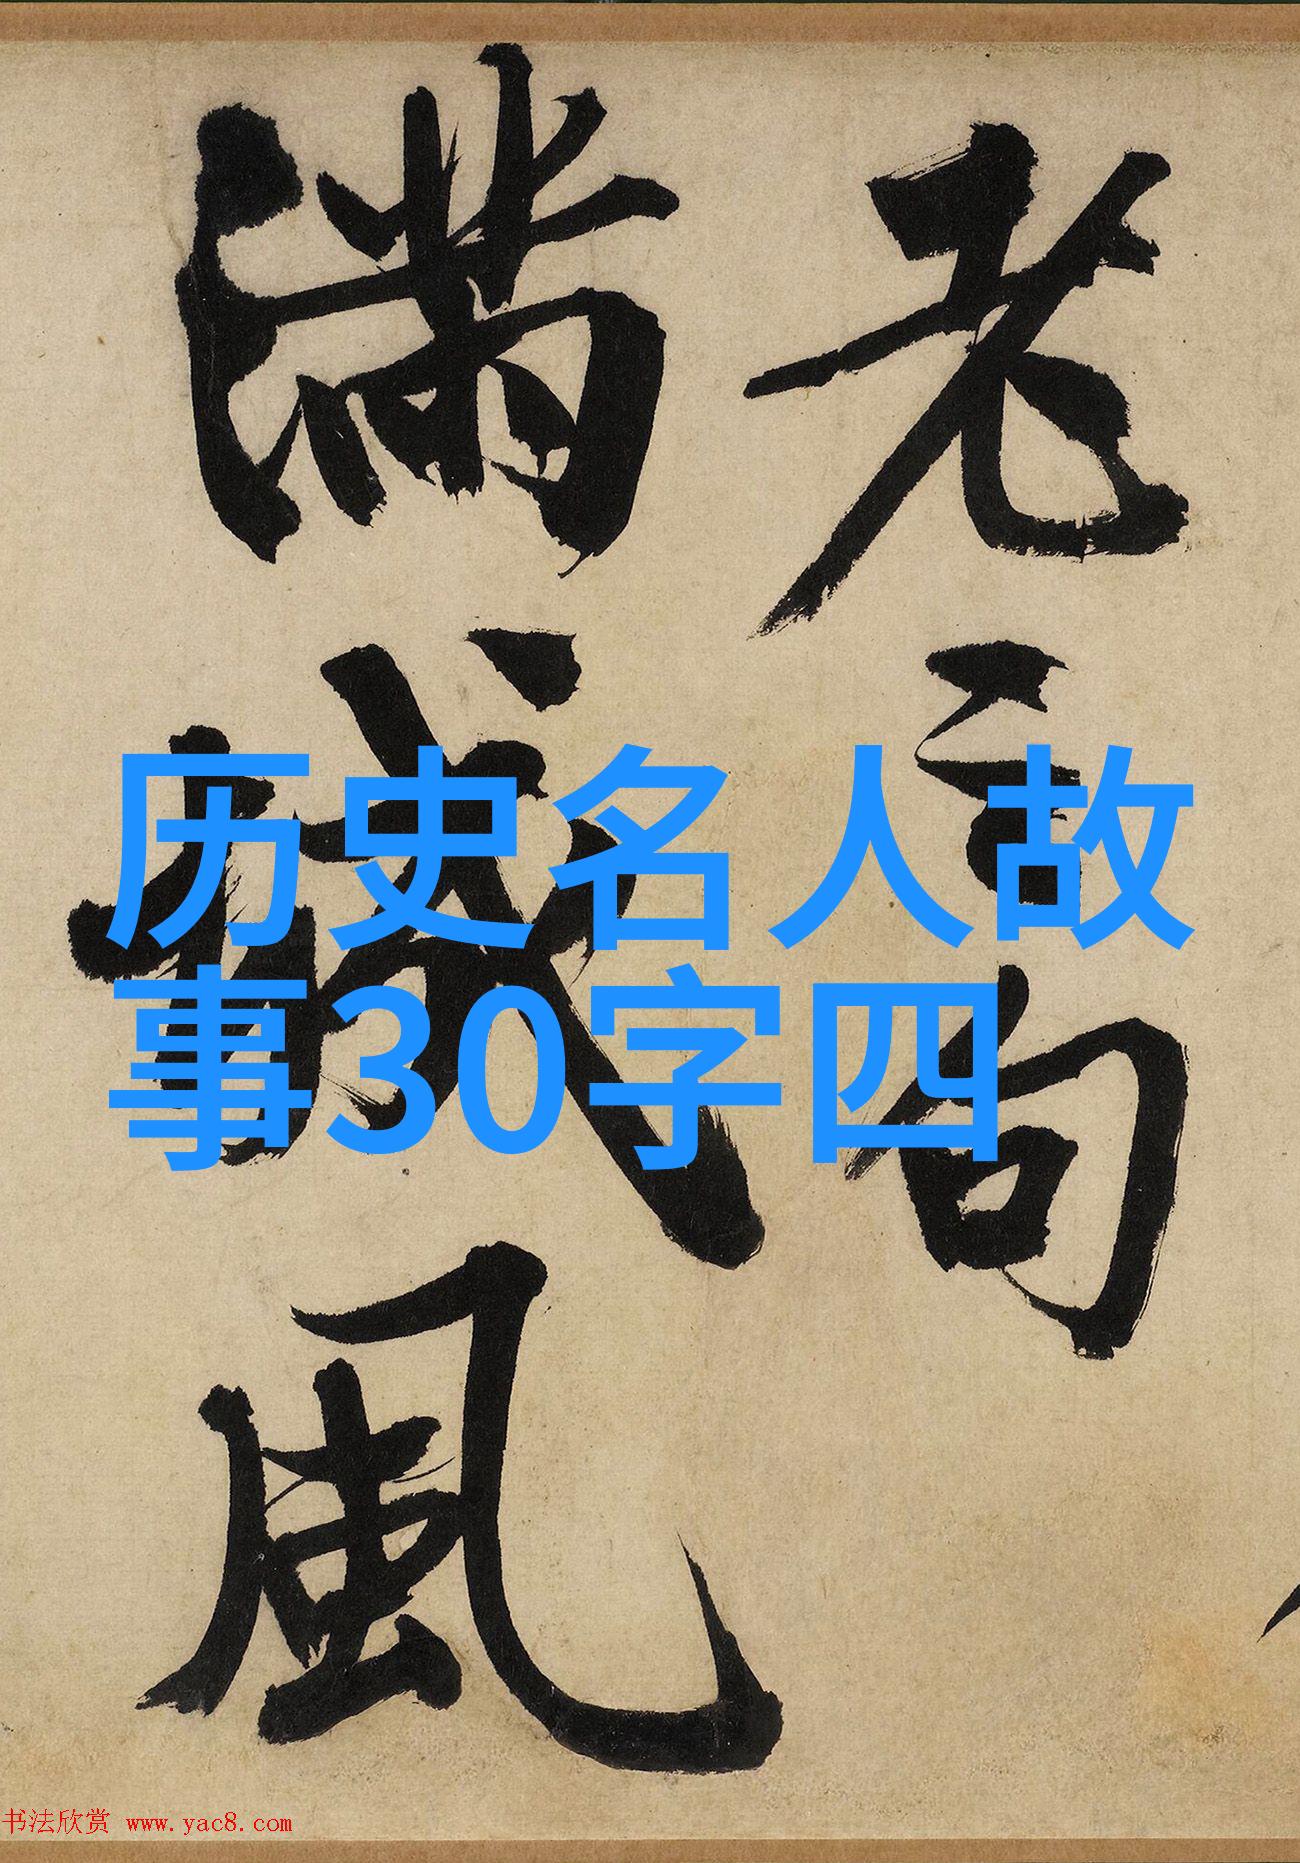 老句
滿城風
历史名人故
事30字四
书法欣赏 www.yac8.com